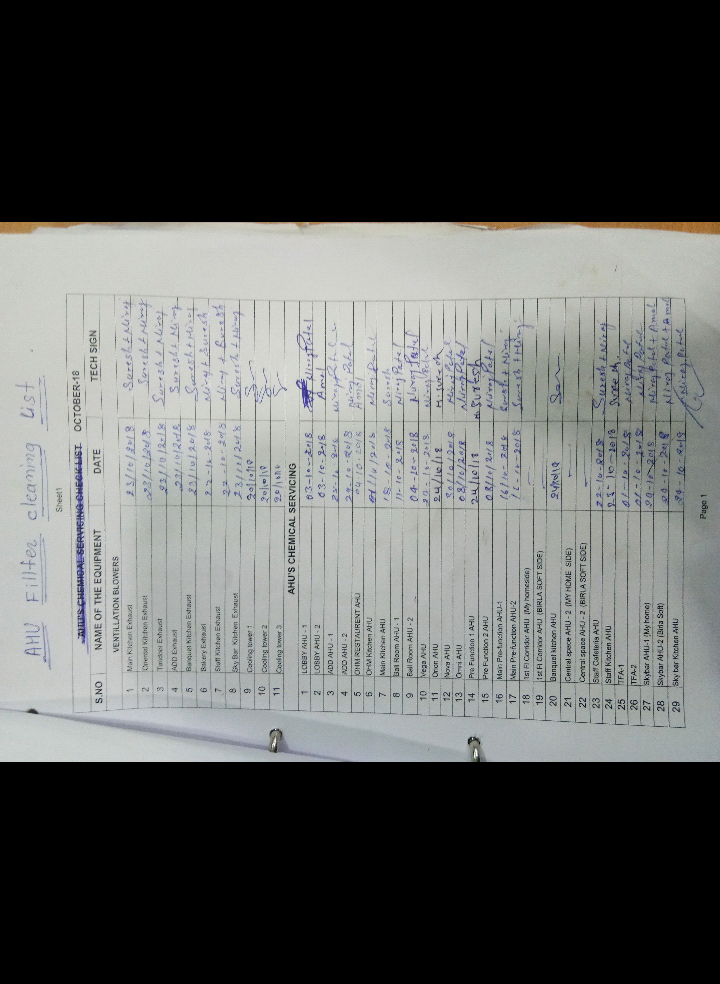 AHU Fillter cleaning list.
Sheet1
AHU'S CHEMICAL SERVICING CHECK LIST OCTOBER-18
S.NO NAME OF THE EQUIPMENT DATE TECH SIGN
VENTILLATION BLOWERS
1 Main Kitchen Exhaust 23/10/2018 Suresh + Niraj
2 Oriental Kitchen Exhaust 23/10/2018 Suresh + Niraj
3 Tandoor Exhaust 23/10/2018 Suresh + Niraj
4 ADD Exhaust 23/10/2018 Suresh + Niraj
5 Banquet Kitchen Exhaust 23/10/2018 Suresh + Niraj
6 Bakery Exhaust 22-10-2018 Niraj + Suresh
7 Staff Kitchen Exhaust 22-10-2018 Niraj + Suresh
8 Sky Bar Kitchen Exhaust 23/10/2018 Suresh + Niraj
9 Cooling tower 1 20/10/18
10 Cooling tower 2 20/10/18
11 Cooling tower 3 20/10/18
AHU'S CHEMICAL SERVICING
1 LOBBY AHU - 1 03-10-2018 Niraj Patel
2 LOBBY AHU - 2 03-10-2018 Amol
3 ADD AHU - 1 Niraj Patel
4 ADD AHU - 2 Niraj Patel
5 OHM RESTAURENT AHU 04-10-2018 Amol
6 OHM Kitchen AHU Niraj Patel
7 Main Kitchen AHU Suresh
8 Ball Room AHU - 1 11-10-2018 Niraj Patel
9 Ball Room AHU - 2 Niraj Patel
10 Vega AHU Niraj Patel
11 Orion AHU 24/10/18 H. Suresh
12 Nova AHU Niraj Patel
13 Omni AHU 08/10/2018 Niraj Patel
14 Pre Function 1 AHU 24/10/18 H. Suresh
15 Pre Function 2 AHU 08/10/2018 Niraj Patel
16 Main Pre-function AHU-1 16/10-2018 Suresh + Niraj
17 Main Pre-function AHU-2 16-10-2018 Suresh + Niraj
18 1st Fl Corridor AHU (My homeside)
19 1st Fl Corridor AHU (BIRLA SOFT SIDE)
20 Banquet kitchen AHU
21 Central space AHU - 2 (MY HOME SIDE)
22 Central space AHU - 2 (BIRLA SOFT SIDE)
23 Staff Cafeteria AHU 22-10-2018 Suresh + Niraj
24 Staff Kitchen AHU Suresh
25 TFA-1 01-10-2018 Niraj Patel
26 TFA-2 01-10-2018 Niraj Patel
27 Skybar AHU-1 (My home) 29-10-2018 Niraj Patel + Amol
28 Skybar AHU-2 (Birla Soft) 29-10-2018 Niraj Patel + Amol
29 Sky bar Kitchen AHU 29-10-2018 Niraj Patel
Page 1